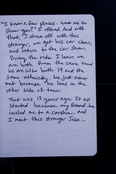 "I know a few places. Want me to
show you?" I offered. And with
that, I drove off with this
stranger, we got his car clean,
and return to the car show.
During the ride I learn we
are both from the same town
we are also both 19 and the
same ethnicity. We just never
met because he lives on the
other side of town.
That was 13 years ago. It all
started because my friend Jose
invited me to a carshow, and
I meet this stranger Jose...